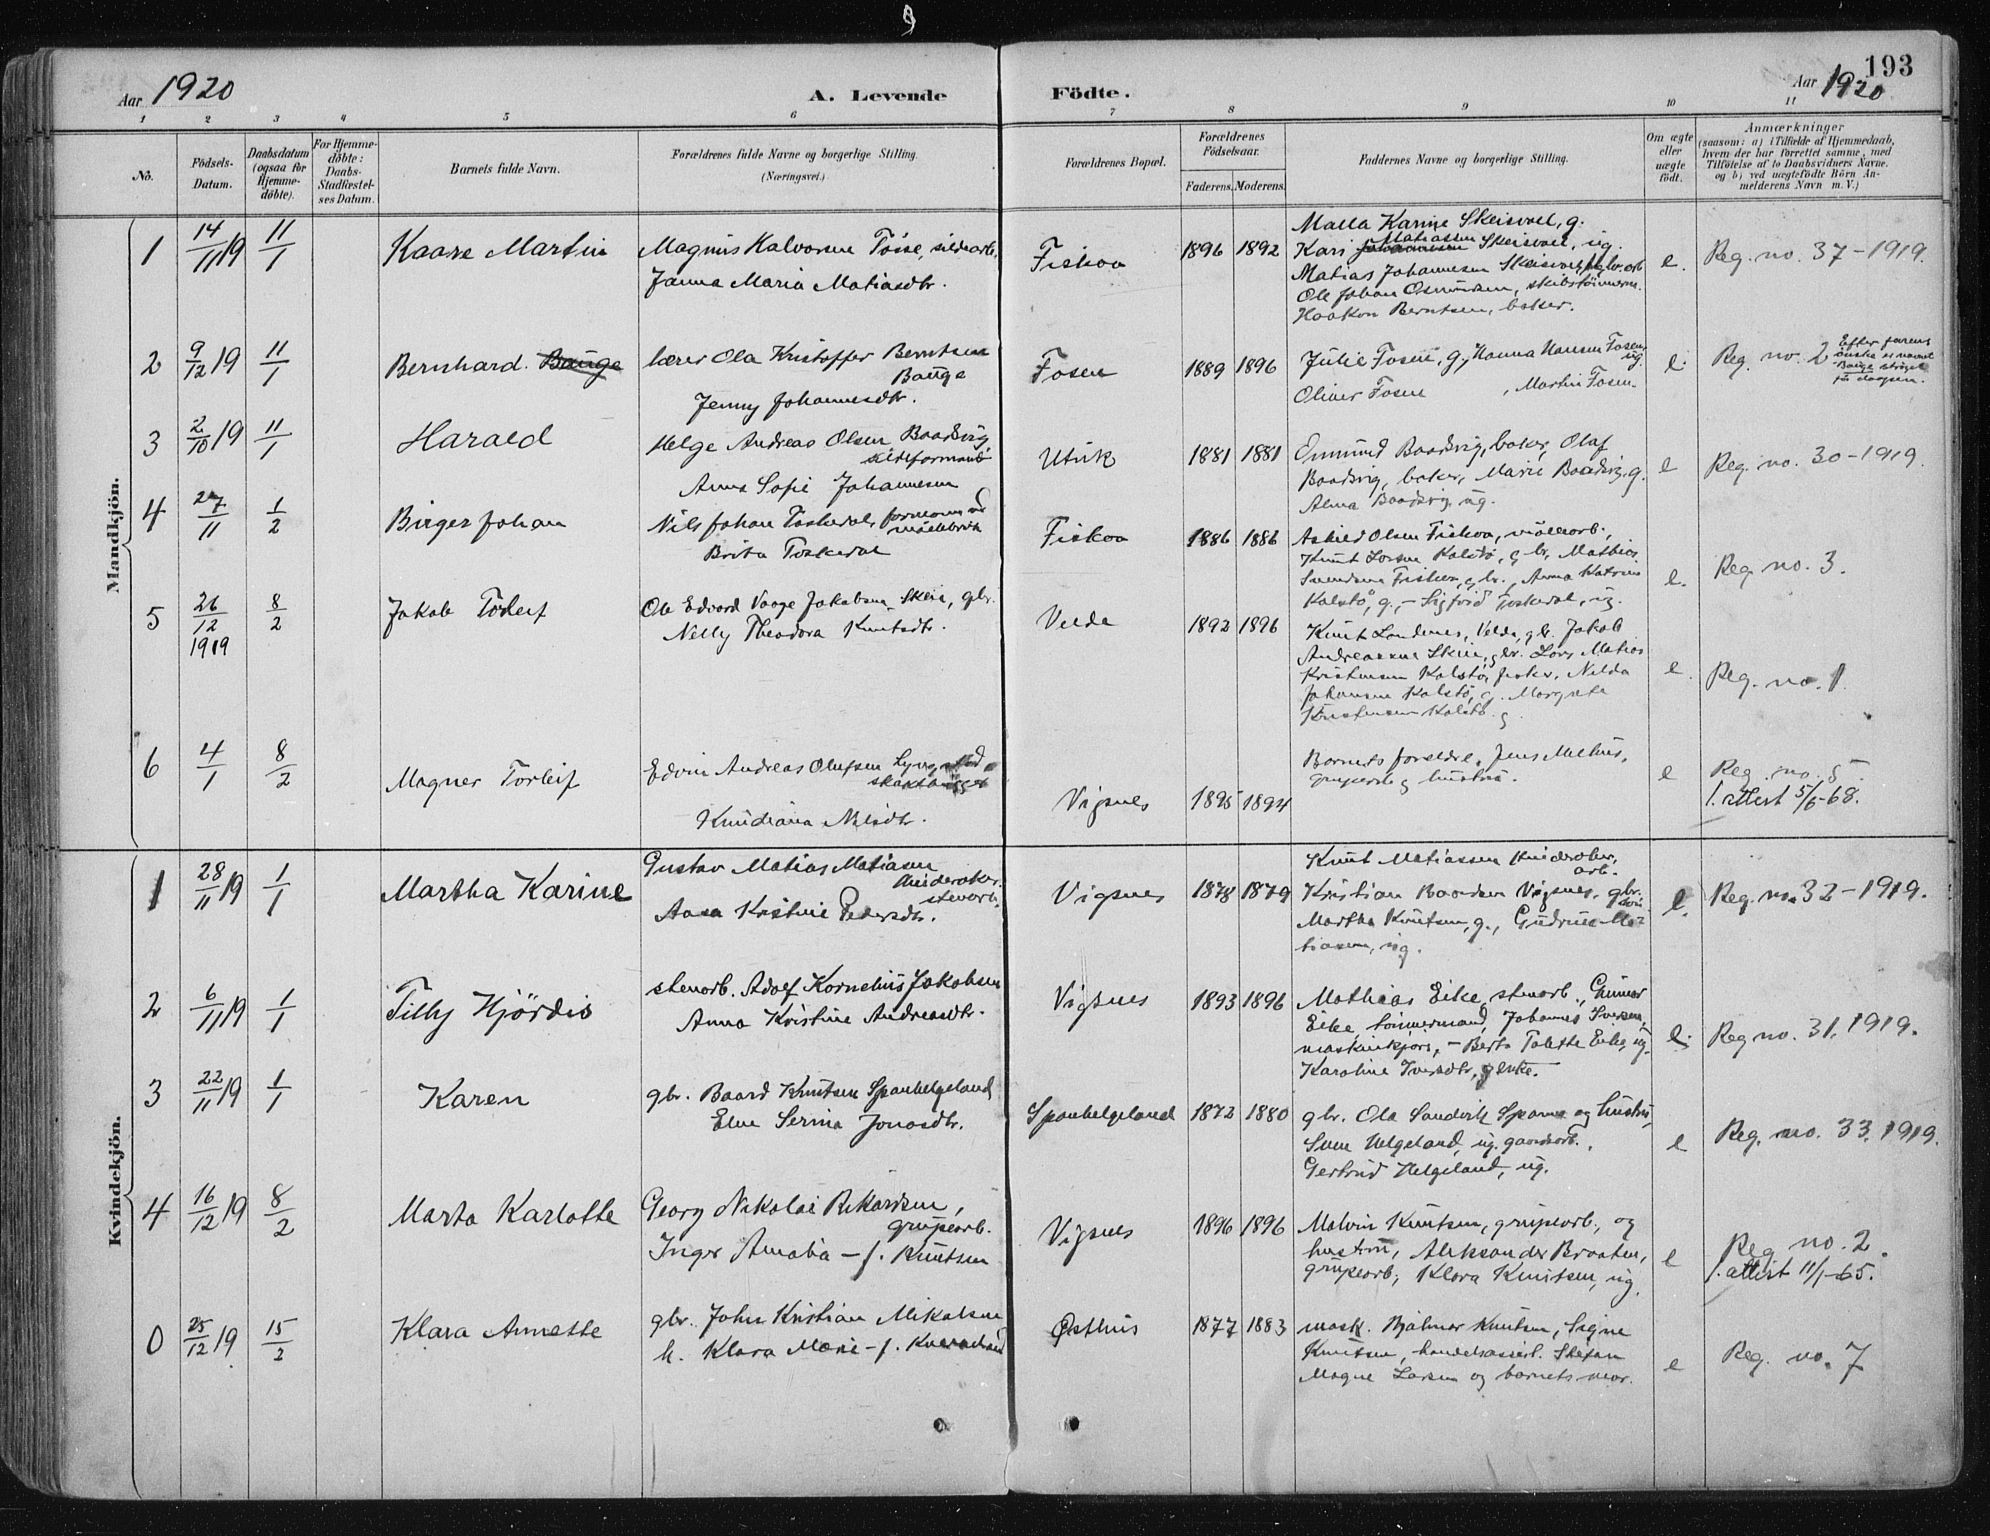 193
Aar 1920
A. Levende
Födte.
Aar 1920
1 2 3 4 5 6 7 8 9 10 11
No.
Födsels-
Datum.
Daabsdatum
(ogsaa for
Hjemme-
döbte).
For Hjemme-
döbte:
Daabs-
Stadfæstel-
ses Datum.
Barnets fulde Navn.
Forældrenes fulde Navne og borgerlige Stilling.
(Næringsvei.)
Forældrenes Bopæl.
Forældrenes
Födselsaar.
Faderens. Moderens.
Faddernes Navne og borgerlige Stilling.
Om ægte
eller
uægte
födt.
Anmærkninger
(saasom: a) i Tilfælde af Hjemmedaab,
hvem der har forrettet samme, med
Tilföielse af to Daabsvidners Navne,
og b) ved uægtefödte Börn An-
melderens Navn m. V.)
Mandkjön.
1 14/11 19 11/1 Kaare Martin
Magnus Halvorsen Tösse, sildearb.
Janna Maria Matiasdtr.
Fiskaa 1896 1892
Malla Karine Skeisvoll, g.
Kari Matiassen Skeisvoll, ug.
Matias Johannesen Skeisvoll,
Ole Johan Osmundsen, skibstömmerm.
Haakon Berntsen, bøker.
e. Reg. no. 37-1919.
2 9/12 19 11/1 Bernhard. Bauge
lærer Ola Kristoffer Berntsen
Bauge
Jenny Johannesdtr.
Fosen 1889 1896
Julie Fosen, g., Hanna Hansen Fosen,
ug.
Oliver Fosen, Martin Fosen.
e. Reg. no. 2
Efter farens
önske er navnet
Bauge ströket
før daapen.
3 2/10 19 11/1 Harald
Helge Andreas Olsen Baadsvig
sildformand
Anna Sofie Johannesen
Utvik 1881 1881
Emmund Baadsvig, bøker, Olaf
Baadsvig, bøker, Marie Baadsvig, g.
Alma Baadsvig, ug.
e Reg. no. 30-1919.
4 27/11 1/2 Birger Johan
Nils Johan Toskedal, formann ved
Brita Toskedal
Fiskaa 1886 1886
Askild Olsen Fiskaa,
Knut Larsen Kalstö, gbr., Mathias
Svendsen Fiskaa, gbr., Anna Katrine
Kalstö, g., - Sigfrid Toskedal, ug.
e. Reg. no. 3.
5 26/12 1919 8/2 Jakob Torleif
Ole Edvard Vaage Jakobsen Skeie, gbr.
Nelly Theodora Knutsdtr.
Velde 1892 1896
Knut Velde, gbr. Jakob
Andreassen Skeie, gbr. Lars Matias
Kristensen Kalstö, fisker, Nilda
Johansen Kalstö, g. Margrete
Kristensen Kalstö g
e. Reg. no. 1.
6 4/1 8/2 Magner Torleif
Edvin Andreas Olufsen
Knudiana Nilsdtr.
Vigsnes 1895 1894
Barnets forældre, Jens
grupearb. og hustru.
e Reg. no. 5
1. attest 5/6-68.
Kvindekjön.
1 28/11 19 1/1 Martha Karine
Gustav Matias Matiasen
stenarb.
Aasa Kristine Pedersdtr.
Vigsnes 1878 1879
Knut Matiassen
arb.
Kristian Baardsen Vigsnes, gbr.
Martha Knutsen, g., Gudrun Ma-
tiasen, ug.
e. Reg. no. 32-1919.
2 6/11 19 1/1 Tilly Hjördis
stenarb. Adolf Kornelius Jakobsen
Anna Kristine Andreasdtr.
Vigsnes 1893 1896
Mathias Eike, stenarb., Gunnar
Eike, tömmermand, Johannes Iversen,
maskinkjörer, - Berta Talette Eike, ug.
Karoline Iversdtr, enke.
e. Reg no. 31, 1919.
3 22/11 19 1/1 Karen
gbr. Baard Knutsen Spanhelgeland
Elen Serina Jonasdtr.
Spanhelgeland 1872 1880
gbr. Ola Sandvik Spanne og hustru,
Sven Helgeland, ug. gaardsarb.,
Gertrud Helgeland, ug.
e Reg. no. 33, 1919.
4 16/12 19 8/2 Marta Karlotte
Georg Nikolai Rikardsen,
grupearb.
Inger Amalia - f. Knutsen
Vigsnes 1896 1896
Malvin Knutsen, grupearb., og
hustru, Aleksander Braaten,
grupearb., Klara Knutsen, ug
e Reg. no. 2.
1. attest 11/1-65.
0 25/12 19 15/2 Klara Annette
gbr. John Kristian Mikalsen
h. Klara Marie - f.
Østhus 1877 1883
mask. Hjalmar Knutsen, Signe
Knutsen, Stefan
Magne Larsen og barnets mor.
e Reg. no. 7